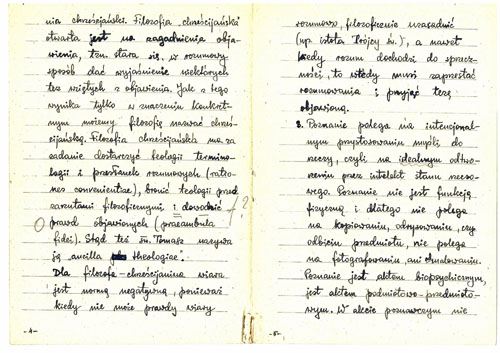 nia chrześcijański. Filozofia chrześcijańska
otwarta jest na zagadnienia obja-
wienia, tzn. stara się w rozumowy
sposób dać wyjaśnienie niektórych
tez wziętych z objawienia. Jak z tego
wynika tylko w znaczeniu konkret-
nym możemy filozofię nazwać chrześ-
cijańską. Filozofia chrześcijańska ma za
zadanie dostarczyć teologii termino-
logii i przesłanek rozumowych (ratio-
nes convenientiae), bronić teologii przed
zarzutami filozoficznymi i dowodzić
prawd objawionych (praeambula
fidei). Stąd też św. Tomasz nazywa
ją ancilla theologiae.
Dla filozofa-chrześcijanina wiara
jest normą negatywną, ponieważ
kiedy nie może prawdy wiary
-4-
?
rozumowo, filozoficznie uzasadnić
(np. istota Trójcy Św.), a nawet
kiedy rozum dochodzi do sprzecz-
ności, to wtedy musi zaprzestać
rozumowania i przyjąć tezę
objawioną.
3. Poznanie polega na intencjonal-
nym przystosowaniu myśli do
rzeczy, czyli na idealnym odtwo-
rzeniu przez intelekt stanu rzeczo-
wego. Poznanie nie jest funkcją
fizyczną i dlatego nie polega
na kopiowaniu, odrysowaniu, czy
odbiciu przedmiotu, nie polega
na fotografowaniu, ani
Poznanie jest aktem biopsychicznym,
jest aktem podmiotowo-przedmioto-
wym. W akcie poznawczym nie
-5-